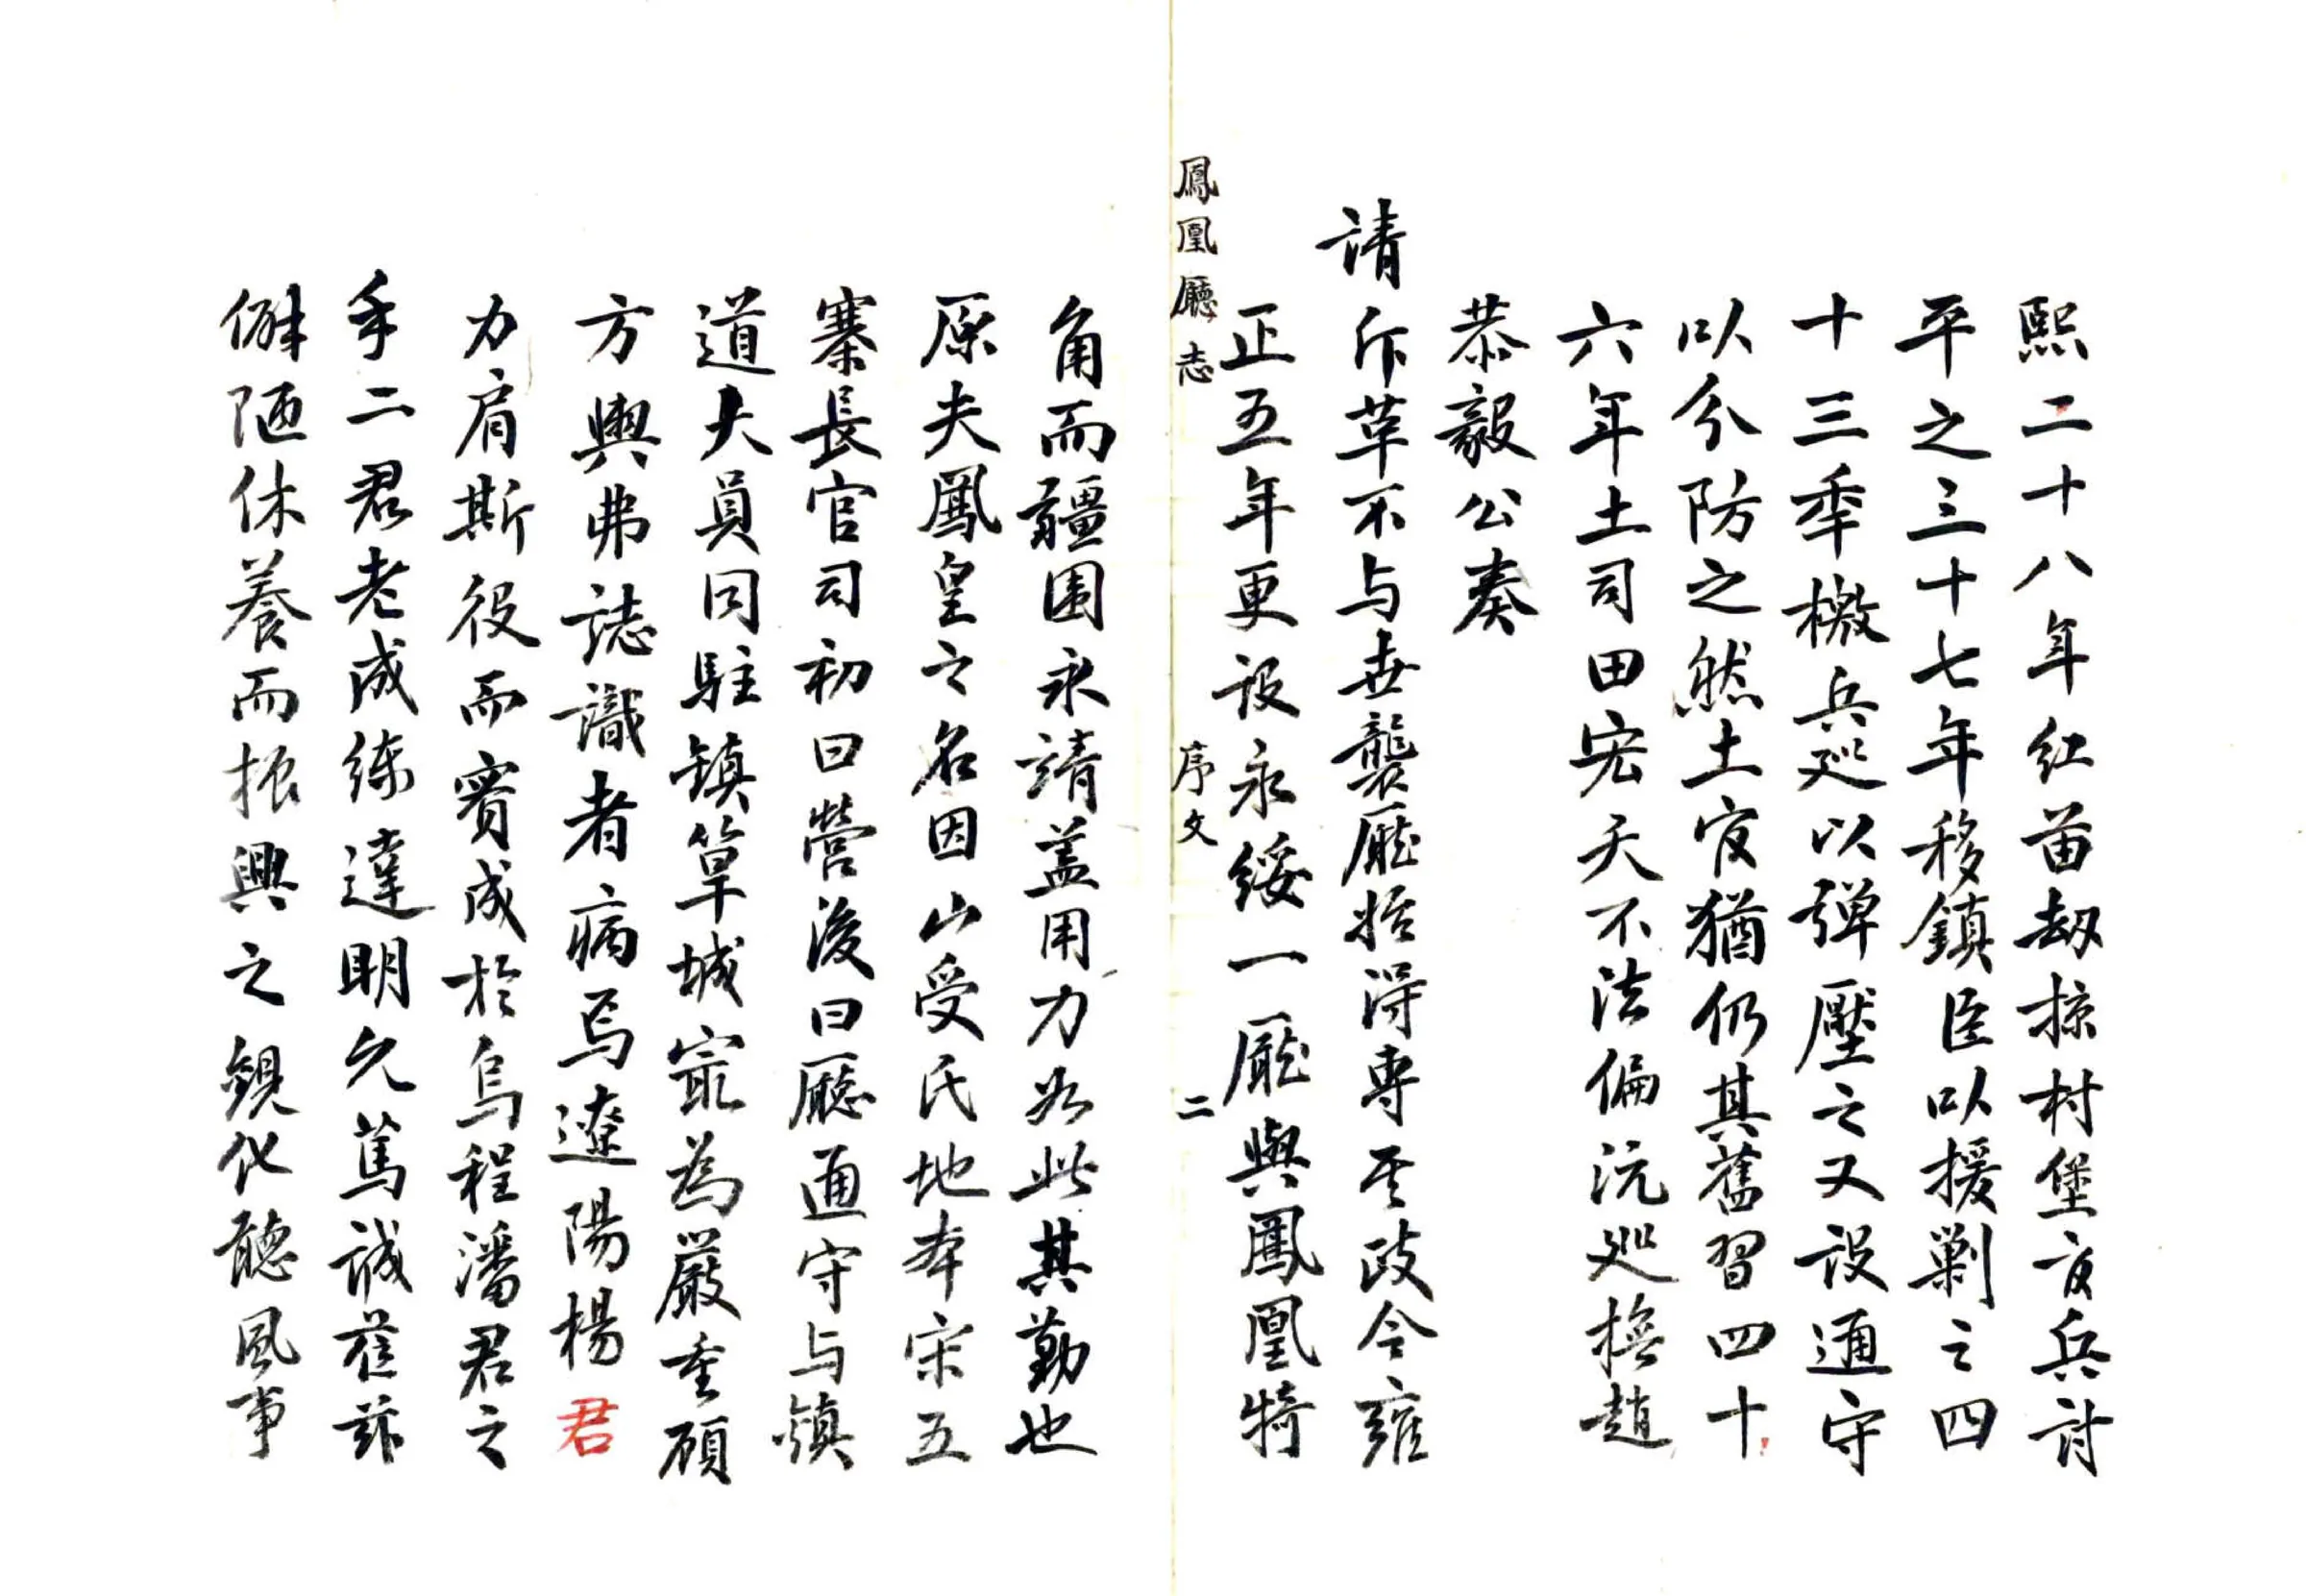 熙二十八年红苗劫掠村堡夜兵討
平之三十七年移鎮臣以援剿之四
十三季檄兵巡以弹壓之又设通守
以分防之然土官猶仍其舊習四十
六年土司田宏天不法偏沅巡撫趙
恭毅公奏
请斥革不与世襲廳始得専其政今雍
正五年更设永綏一廳與鳳凰犄
鳳凰廳志 序文 二
角而疆圉永靖盖用力如此其勤也
原夫鳳皇之名因山受氏地本宋五
寨長官司初曰營後曰廳通守与鎮
道大員同駐鎮筸城寂為嚴重顾
方輿弗誌識者病焉遼陽楊君
力肩斯役而賓成於烏程潘君之
手二君老成练達明允篤诚莅兹
僻陋休養而振興之觀化聽風事